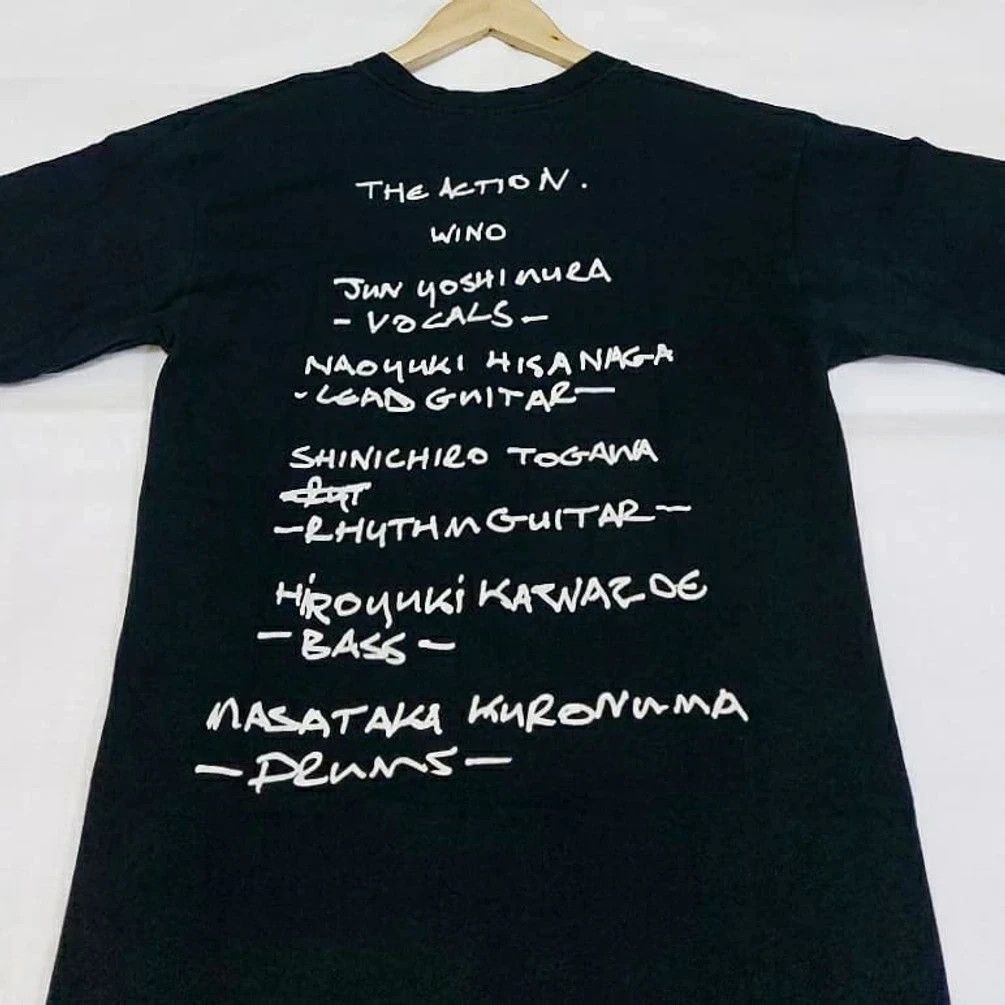 THE ACTION.
WINO
JUN YOSHIMURA
- VOCALS -
NAOYUKI HISANAGA
- LEAD GUITAR -
SHINICHIRO TOGAWA
- RHYTHM GUITAR -
HIROYUKI KAWAZOE
- BASS -
MASATAKA KURONUMA
- DRUMS -